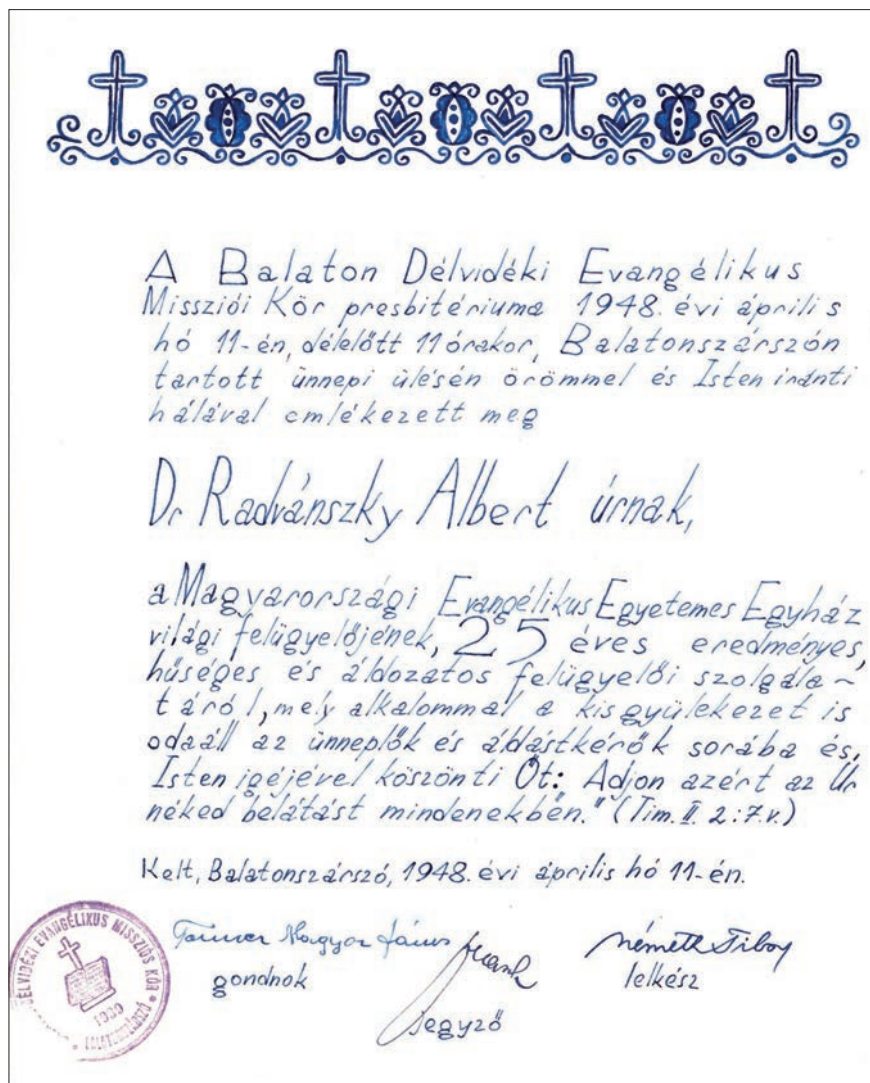 A Balaton Délvidéki Evangélikus
Missziói Kör presbitériuma 1948. évi április
hó 11-én, délelőtt 11 órakor, Balatonszárszón
tartott ünnepi ülésén örömmel és Isten iránti
hálával emlékezett meg
Dr Radvánszky Albert úrnak,
a Magyarországi Evangélikus Egyetemes Egyház
világi felügyelőjének, 25 éves eredményes,
hűséges és áldozatos felügyelői szolgála-
táról, mely alkalommal a kis gyülekezet is
odaáll az ünneplők és áldástkérők sorába és,
Isten igéjével köszönti Őt: Adjon azért az Úr
néked belátást mindenekben." (Tim. II. 2:7.v.)
Kelt, Balatonszárszó, 1948. évi április hó 11-én.
Magyar János
Németh Tibor
gondnok
lelkész
jegyző
ÉLVIDÉKI EVANGÉLIKUS MISSZIÓS KÖR
1939